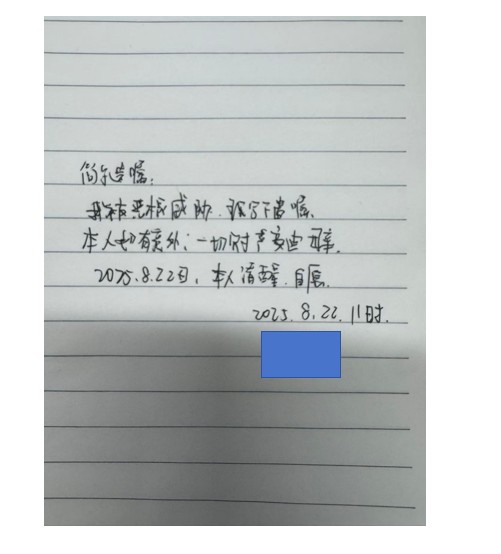 简单遗嘱:
我被恶棍威胁.现写下遗嘱.
本人如有意外,一切
2025.8.22日,本人清醒.自愿.
2025.8.22.11时.